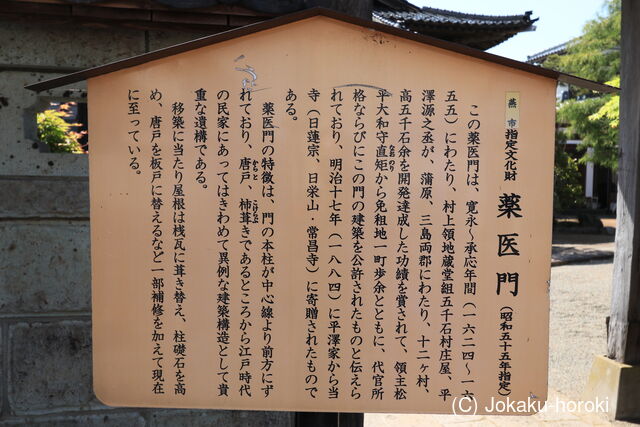 燕市指定文化財 薬医門 (昭和五十五年指定)
この薬医門は、寛永~承応年間(一六二四~一六
五五)にわたり、村上領地蔵堂組五千石村庄屋、平
澤源之丞が、蒲原、三島両郡にわたり、十二ヶ村、
高五千石余を開発達成した功績を賞されて、領主松
平大和守直矩から免租地一町歩余とともに、代官所
格ならびにこの門の建築を公許されたものと伝えら
れており、明治十七年(一八八四)に平澤家から当
寺(日蓮宗、日栄山・常昌寺)に寄贈されたもので
ある。
薬医門の特徴は、門の本柱が中心線より前方にず
れており、唐戸、杮葺きであるところから江戸時代
の民家にあってはきわめて異例な建築構造として貴
重な遺構である。
移築に当たり屋根は桟瓦に葺き替え、柱礎石を高
め、唐戸を板戸に替えるなど一部補修を加えて現在
に至っている。
(C) Jokaku-horoki